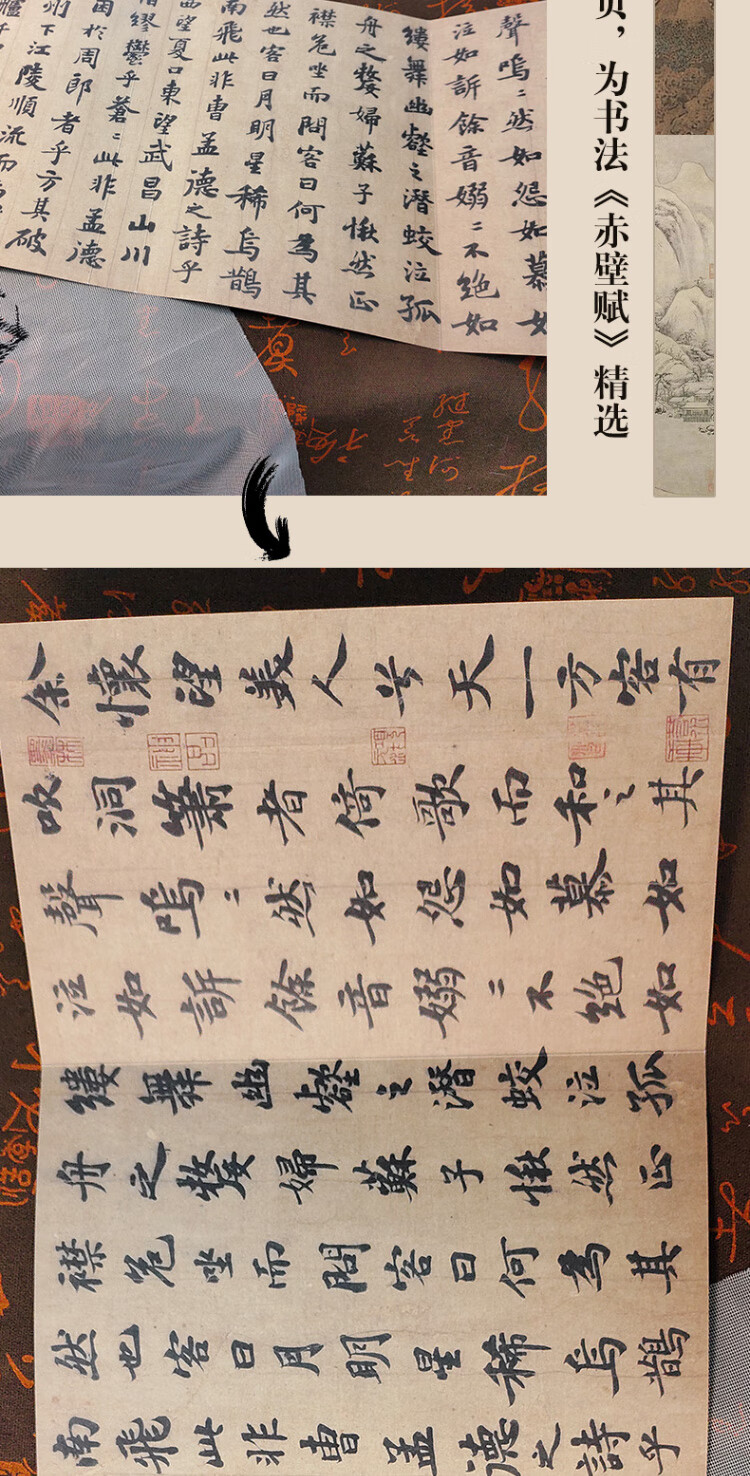 ，为书法《赤壁赋》精选
聲嗚〻然如怨如慕如
泣如訴餘音嫋〻不絕如
縷舞幽壑之潛蛟泣孤
舟之嫠婦蘇子愀然正
襟危坐而問客曰何為其
然也客曰月明星稀烏鵲
南飛此非曹孟德之詩乎
西望夏口東望武昌山川
相繆鬱乎蒼〻此非孟德
困於周郎者乎方其破
州下江陵順流而
余懷望美人兮天一方客有
吹洞簫者倚歌而和之其
聲嗚〻然如怨如慕如
泣如訴餘音嫋〻不絕如
縷舞幽壑之潛蛟泣孤
舟之嫠婦蘇子愀然正
襟危坐而問客曰何為其
然也客曰月明星稀烏鵲
南飛此非曹孟德之詩乎